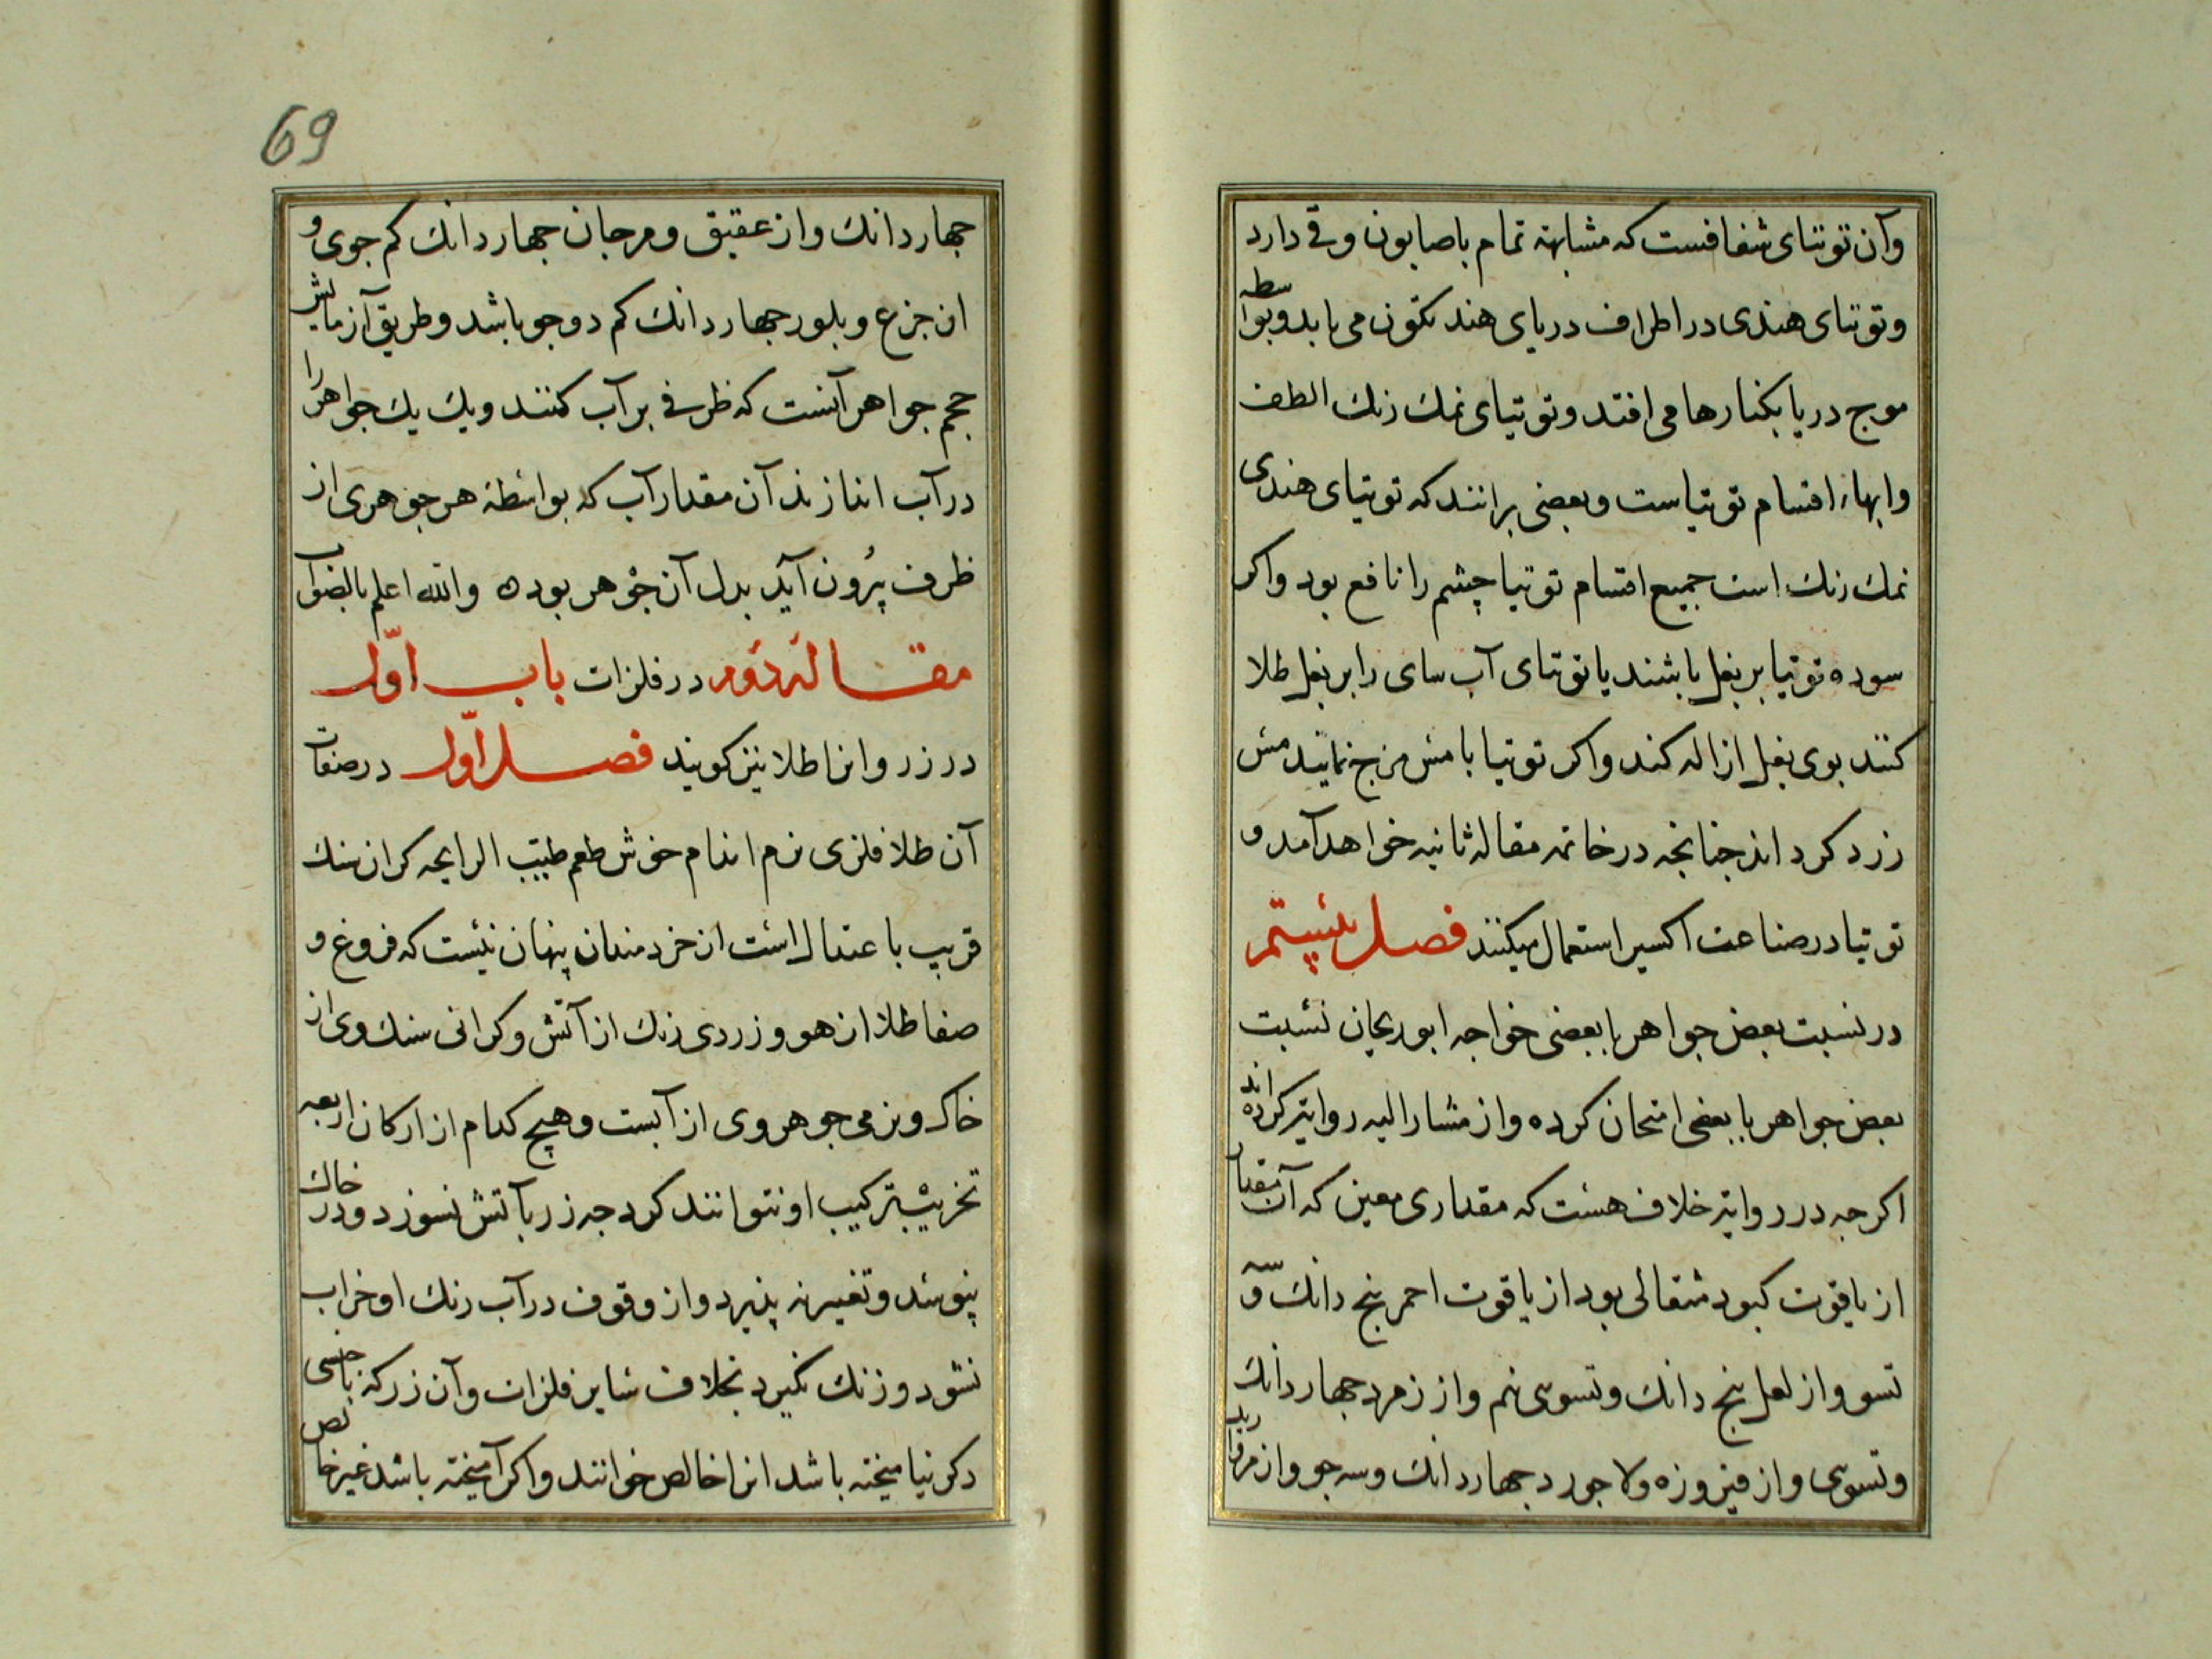 وآن توتیای شفافست که مشابهة تمام باصابون وقی دارد
وتوتیای هندی در اطراف دریای هند تکون می یابد وبواسطه
موج دریا بکنارها می افتد وتوتیای نمک رنک الطف
وابهاء اقسام توتیاست وبعضی برانند که توتیای هندی
نمک رنک است جمیع اقسام توتیا چشم را نافع بود واکر
سوده توتیا بر بغل پاشند یا توتیای آب سای را بر بغل طلا
کنند بوی بغل ازاله کند واکر توتیا با مس مزج نمایند مس
زرد کرداند جنانجه در خاتمه مقاله ثانیه خواهد آمد و
توتیا در صناعت اکسیر استعمال میکنند فصل بیستم
در نسبت بعض جواهر با بعضی خواجه ابوریحان نسبت
بعض جواهر با بعضی امتحان کرده واز مشار الیه روایة کرده اند
اکرجه در روایة خلاف هست که مقداری معین که آن مقدار
از یاقوت کبود مثقالی بود از یاقوت احمر پنج دانک و سه
تسو واز لعل پنج دانک وتسوی نیم واز زمرد جهار دانک
وتسوی واز فیروزه ولاجورد جهار دانک وسه جو واز مروارید
69
جهار دانک واز عقیق ومرجان جهار دانک کم جوی و
از جزع وبلور جهار دانک کم دو جو باشد وطریق آزمایش
حجم جواهر آنست که ظرفی پر آب کنند ویک یک جواهر را
در آب اندازند آن مقدار آب که بواسطهٔ هر جوهری از
ظرف بیرون آید بدل آن جوهر بود ه والله اعلم بالصواب
مقاله دوم در فلزات باب اوّل
در زر وانرا طلا نیز کویند فصل اوّل در صفات
آن طلا فلزی نرم اندام خوش طعم طیّب الرایحه کران سنک
قریب باعتدال است از خردمندان پنهان نیست که فروغ و
صفا طلا از هو وزردی رنک از آتش وکرانی سنک وی از
خاک ونرمی جوهر وی از آبست وهیج کدام از ارکان اربعه
تخریب ترکیب او نتوانند کرد جه زر بآتش نسوزد ودر خاک
نپوسد وتغییر نه پذیرد واز وقوف در آب رنک او خراب
نشود وزنک نکیرد بخلاف سایر فلزات وآن زر که باجسی
دکر نیامیخته باشد انرا خالص خوانند واکر آمیخته باشد غیر خالص